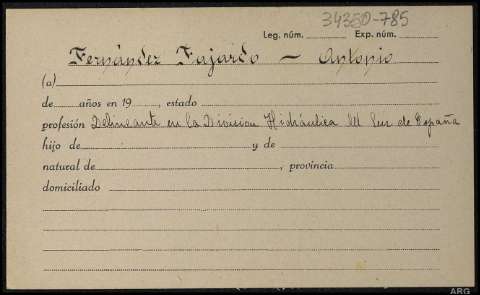 34350-785
Leg. núm. Exp. núm.
Fernández Fajardo — Antonio
(a)
de años en 19 , estado
profesión Delineante en la Division Hidráulica del Sur de España
hijo de y de
natural de , provincia
domiciliado
ARG